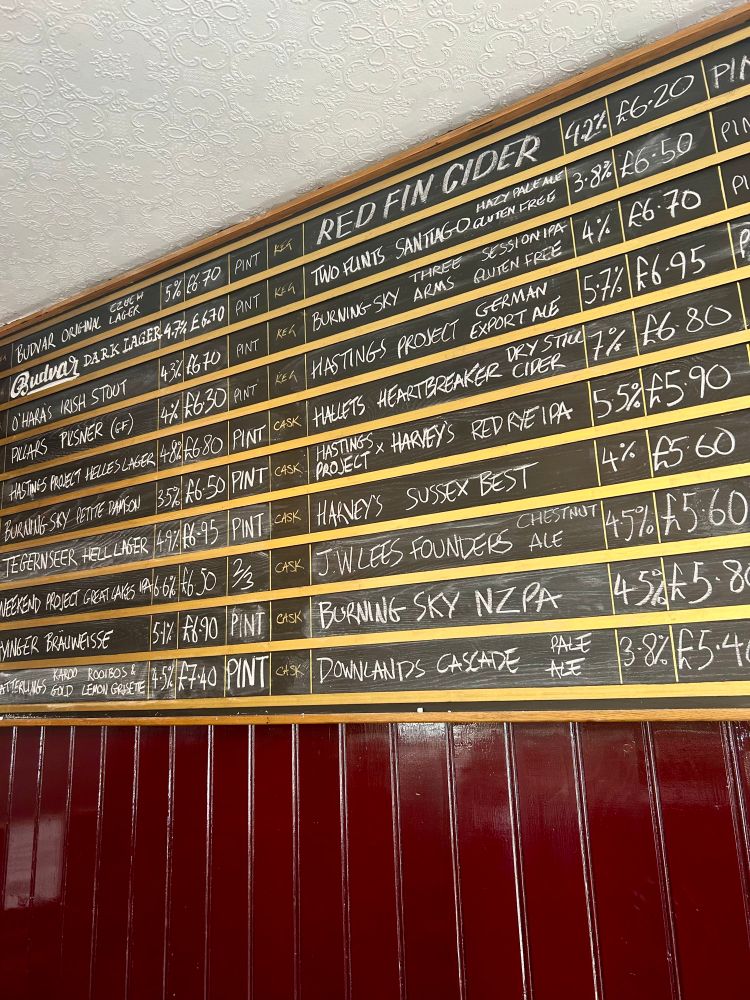 BUDVAR ORIGINAL CZECH LAGER 5% £6.70 PINT
Budvar DARK LAGER 4.7% £6.70 PINT
O'HARA'S IRISH STOUT 4.3% £6.70 PINT
PILLARS PILSNER (GF) 4% £6.30 PINT
HASTINGS PROJECT HELLES LAGER 4.8% £6.80 PINT
BURNING SKY PETITE DAMSON 3.5% £6.50 PINT
TEGERNSEER HELL LAGER 4.9% £6.95 PINT
WEEKEND PROJECT GREAT LAKES IPA 6.6% £6.50 2/3
YINGER BRÄUWEISSE 5.1% £6.90 PINT
ATTERLINGS KAROO ROOIBOS & GOLD LEMON GRISETTE 4.5% £7.40 PINT
KEG RED FIN CIDER 4.2% £6.20 PIN
KEG TWO FLINTS SANTIAGO HAZY PALE ALE GLUTEN FREE 3.8% £6.50 PIN
KEG BURNING SKY THREE ARMS SESSION IPA GLUTEN FREE 4% £6.70 PI
KEG HASTINGS PROJECT GERMAN EXPORT ALE 5.7% £6.95 P
CASK HALLETS HEARTBREAKER DRY STILL CIDER 7% £6.80
CASK HASTINGS PROJECT x HARVEY'S RED RYE IPA 5.5% £5.90
CASK HARVEY'S SUSSEX BEST 4% £5.60
CASK J.W. LEES FOUNDERS CHESTNUT ALE 4.5% £5.60
CASK BURNING SKY NZPA 4.5% £5.80
CASK DOWNLANDS CASCADE PALE ALE 3.8% £5.40